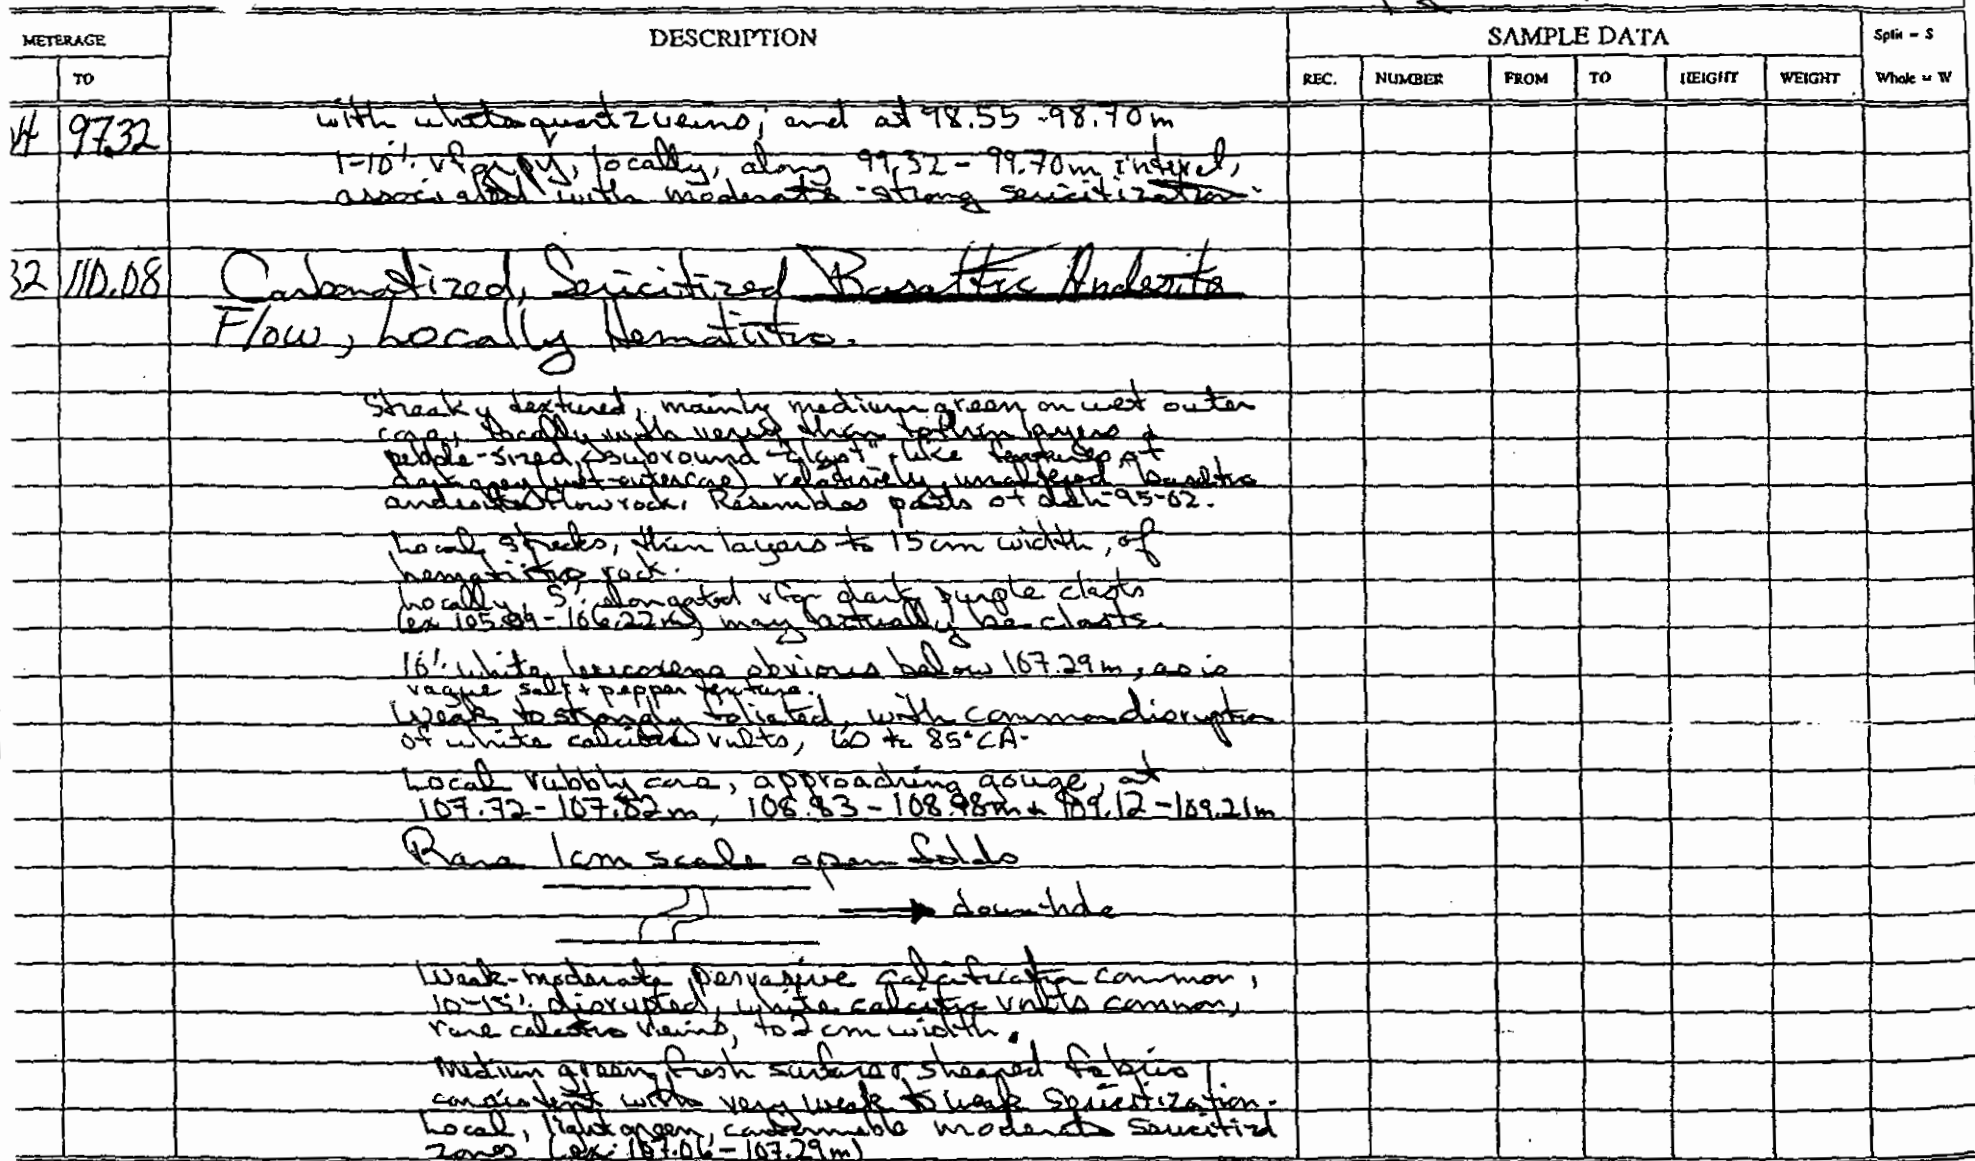 METERAGE DESCRIPTION SAMPLE DATA Split = S
TO REC. NUMBER FROM TO HEIGHT WEIGHT Whole = W
97.32 with white quartz veins, and at 98.55 - 98.70 m
1-10% vfgr py, locally, along 99.32 - 99.70m interval,
associated with moderate-strong sericitization.
32 110.08 Carbonatized, Sericitized Basaltic Andesite
Flow, Locally Hematitic.
Streaky textured, mainly medium green on wet outer
core, locally with very thin to thin layers +
pebble-sized, subround "clast"-like features of
dark grey (wet-outer core) relatively unaltered basaltic
andesite flow rock. Resembles parts of ddh-95-02.
Local specks, thin layers to 15cm width, of
hematitic rock.
Locally, 5% elongated vfgr dark purple clasts
(ex 105.89-106.22m) may actually be clasts.
10% white leucoxene obvious below 107.29m, as is
vague salt + pepper texture.
Weak to strongly foliated, with common disruption
of white calcite vnlts, 60 to 85° CA.
Local rubbly core, approaching gouge, at
107.72-107.82m, 108.83-108.98m + 109.12-109.21m
Rare 1cm scale open folds
down-hole
Weak-moderate pervasive calcification common,
10-15% disrupted, white calcitic vnlts common,
rare calcitic veins, to 2cm width.
Medium green fresh surface + sheared fabric
consistent with very weak to weak sericitization.
Local, light green, conformable moderate sericitized
zones (ex: 107.06-107.29m)